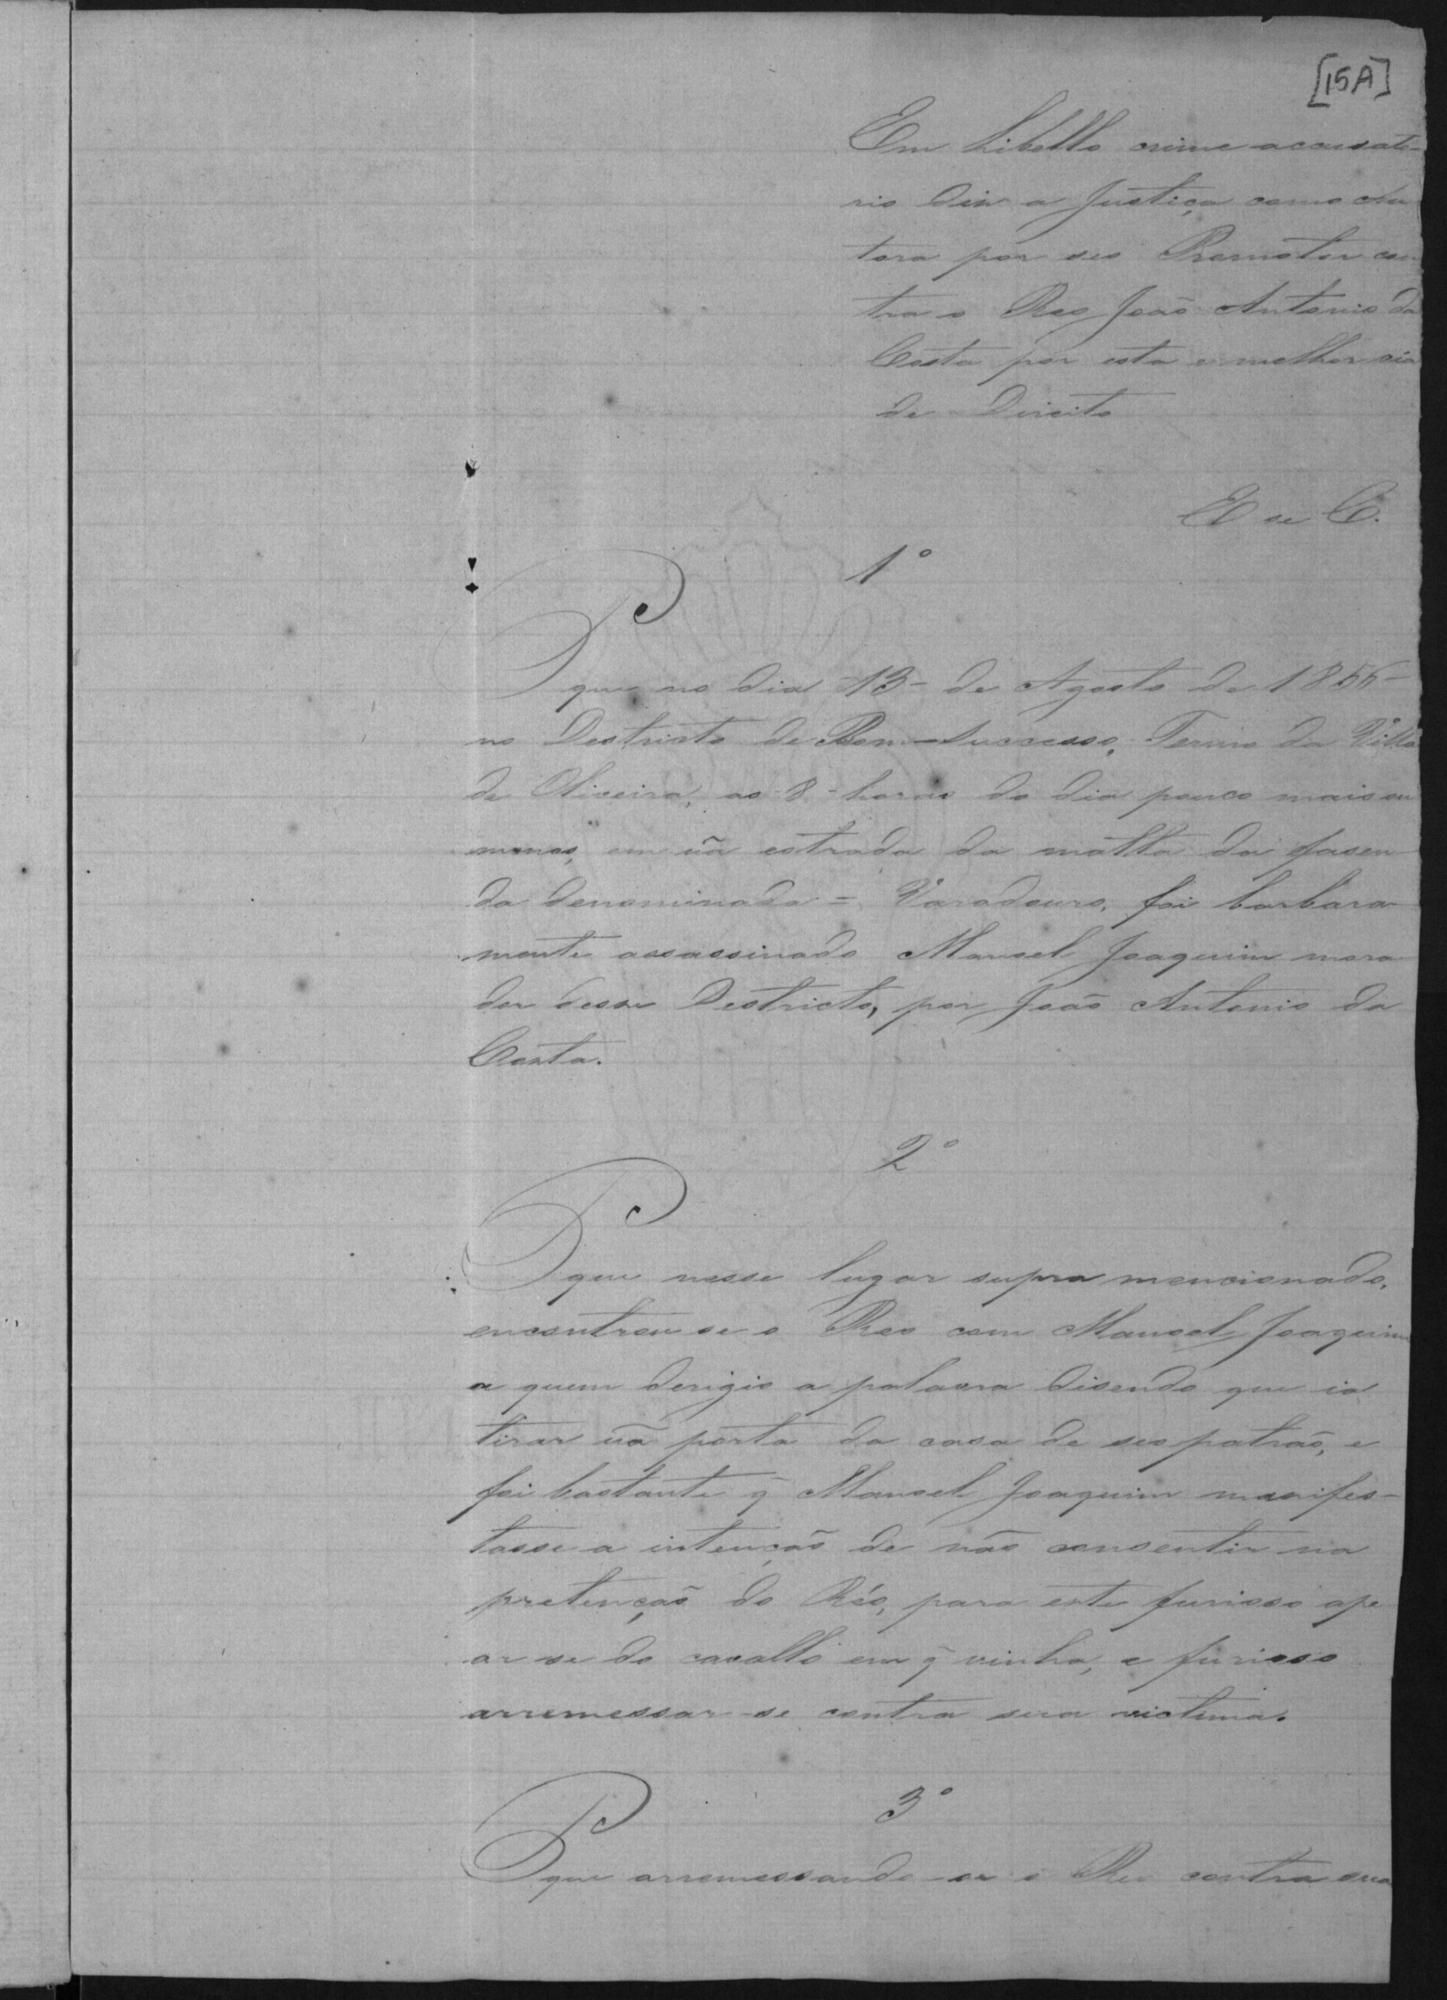 [15A]
Em Libello crime accusato-
rio diz a Justiça como Au
tora por seo Promotor con
tra o Reo João Antonio da
Costa por esta e melhor via
de Direito
E se C.
1º
P
que no dia 13- de Agosto de 1856-
no Destricto de Bom-Successo, Termo da Villa
de Oliveira, as 8- horas do dia pouco mais ou
menos, em uã estrada da matta da fasen
da denominada = Varadouro, foi barbara
mente assassinado Manoel Joaquim mora
dor desse Destricto, por João Antonio da
Costa.
2º
P
que nesse lugar supra mencionado,
encontrou se o Reo com Manoel Joaquim
a quem derigio a palavra disendo que ia
tirar uã porta da casa de seo patrão, e
foi bastante q̃ Manoel Joaquim manifes-
tasse a intenção de não consentir na
pretenção do Réo, para este furioso ape
ar-se do cavallo em q̃ vinha, e furioso
arremessar-se contra sua victima.
3º
P
que arremessando-se o Reo contra sua